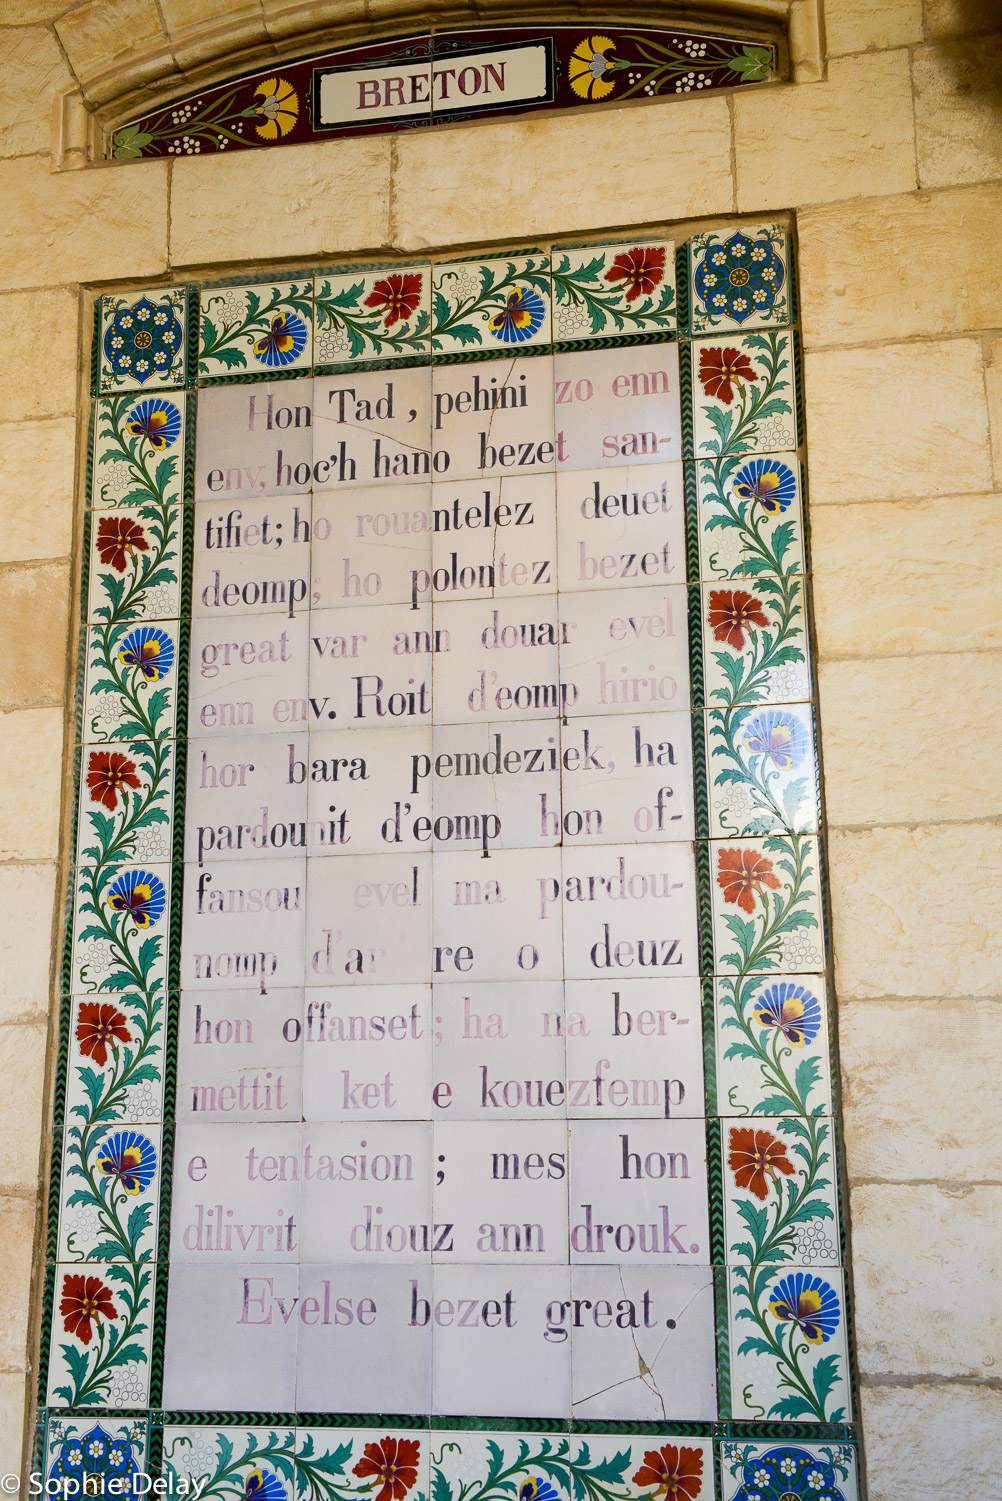 BRETON
Hon Tad, pehini zo enn
env, hoc'h hano bezet san-
tifiet; ho rouantelez deuet
deomp; ho polontez bezet
great var ann douar evel
enn env. Roit d'eomp hirio
hor bara pemdeziek, ha
pardounit d'eomp hon of-
fansou evel ma pardou-
nomp d'ar re o deuz
hon offanset; ha na ber-
mettit ket e kouezfemp
e tentasion; mes hon
dilivrit diouz ann drouk.
Evelse bezet great.
© Sophie Delay